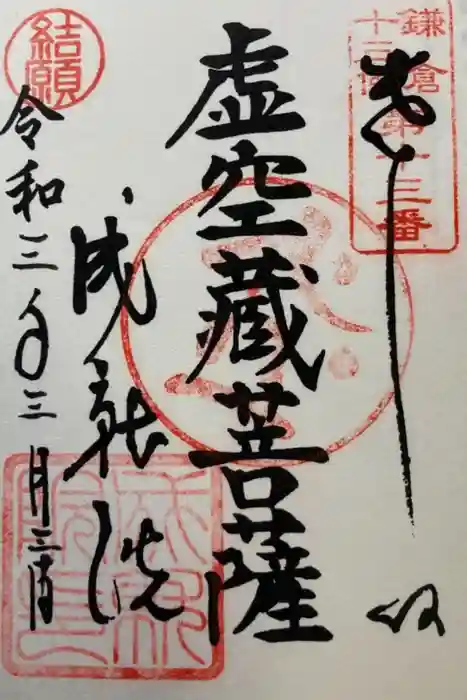 鎌倉第十三番
十三仏
奉拝
虚空蔵菩薩
成就院
結願
令和三年三月三日